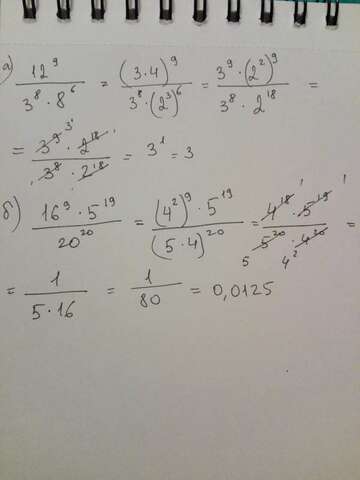 а) 12⁹ / 3⁸ · 8⁶ = (3 · 4)⁹ / 3⁸ · (2³)⁶ = 3⁹ · (2²)⁹ / 3⁸ · 2¹⁸ =
= 3⁹ 3¹ · 2¹⁸ / 3⁸ · 2¹⁸ = 3¹ = 3
б) 16⁹ · 5¹⁹ / 20²⁰ = (4²)⁹ · 5¹⁹ / (5 · 4)²⁰ = 4¹⁸ 1 · 5¹⁹ 1 / 5²⁰ 5 · 4²⁰ 4² =
= 1 / 5·16 = 1 / 80 = 0,0125